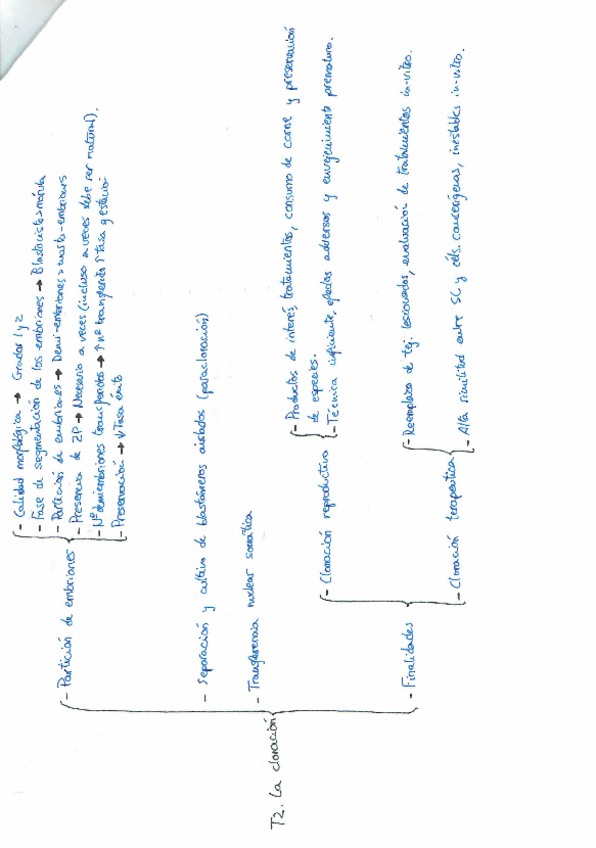 T2. La clonación
- Partición de embriones
- Calidad morfológica → Grados 1 y 2
- Fase de segmentación de los embriones → Blastocisto > mórula
- Partición de embriones → Demi-embriones > cuarto-embriones
- Presencia de ZP → Necesario a veces (incluso a veces debe ser natural).
- Nº demiembriones transferidos → ↑ nº transferido ↑ tasa gestación
- Preservación → ↓ Tasa éxito
- Separación y cultivo de blastómeros aislados (paraclonación)
- Transferencia nuclear somática
- Finalidades
- Clonación reproductiva
- Productos de interés, tratamientos, consumo de carne y preservación
de especies.
- Técnica ineficiente, efectos adversos y envejecimiento prematuro.
- Clonación terapéutica
- Reemplazo de tej. lesionados, evaluación de tratamientos in-vitro.
- Alta similitud entre SC y céls. cancerígenas, inestables in-vitro.